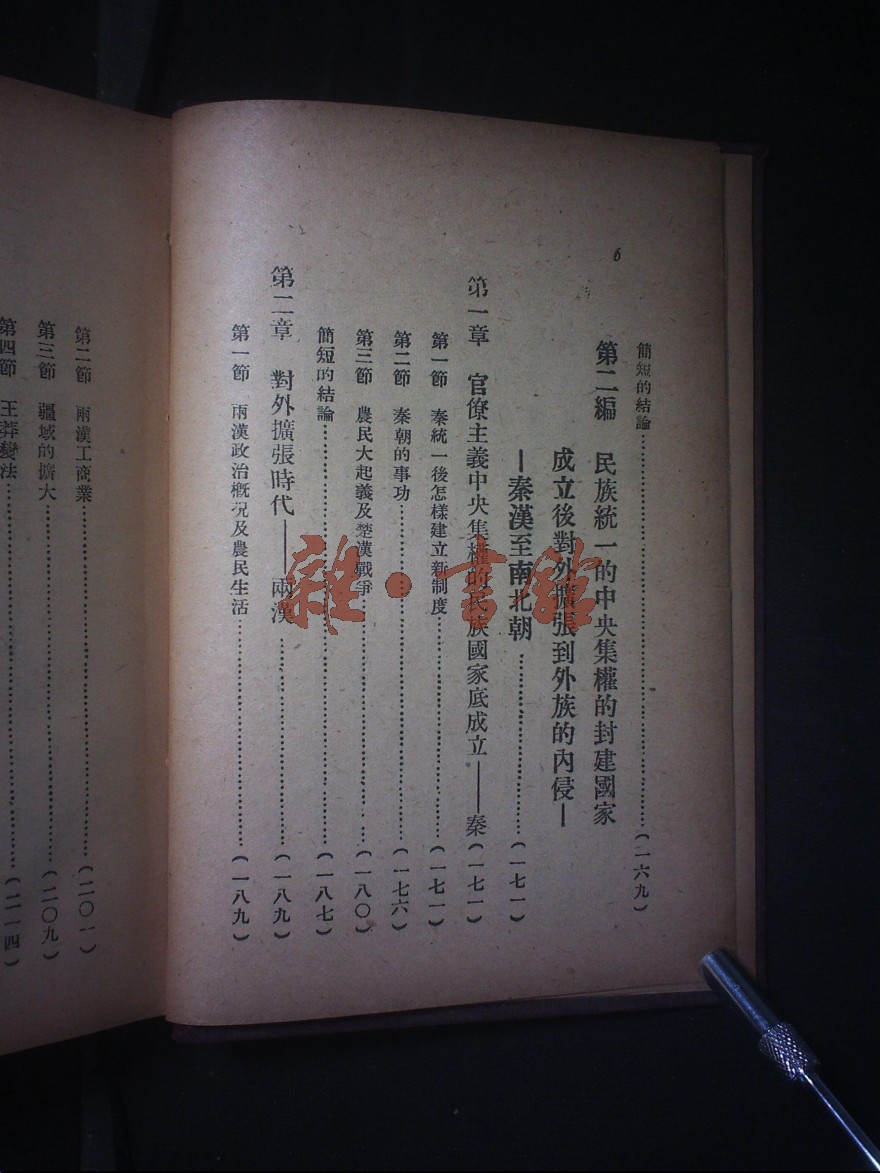 6
簡短的結論……………………(一六九)
第二編　民族統一的中央集權的封建國家
成立後對外擴張到外族的內侵—
—秦漢至南北朝……………………(一七一)
第一章　官僚主義中央集權的民族國家底成立——秦(一七一)
第一節　秦統一後怎樣建立新制度……………………(一七一)
第二節　秦朝的事功……………………(一七六)
第三節　農民大起義及楚漢戰爭……………………(一八〇)
簡短的結論……………………(一八七)
第二章　對外擴張時代——兩漢……………………(一八九)
第一節　兩漢政治概況及農民生活……………………(一八九)
第二節　兩漢工商業……………………(二〇一)
第三節　疆域的擴大……………………(二〇九)
第四節　王莽變法……………………(二一四)
雜·書館